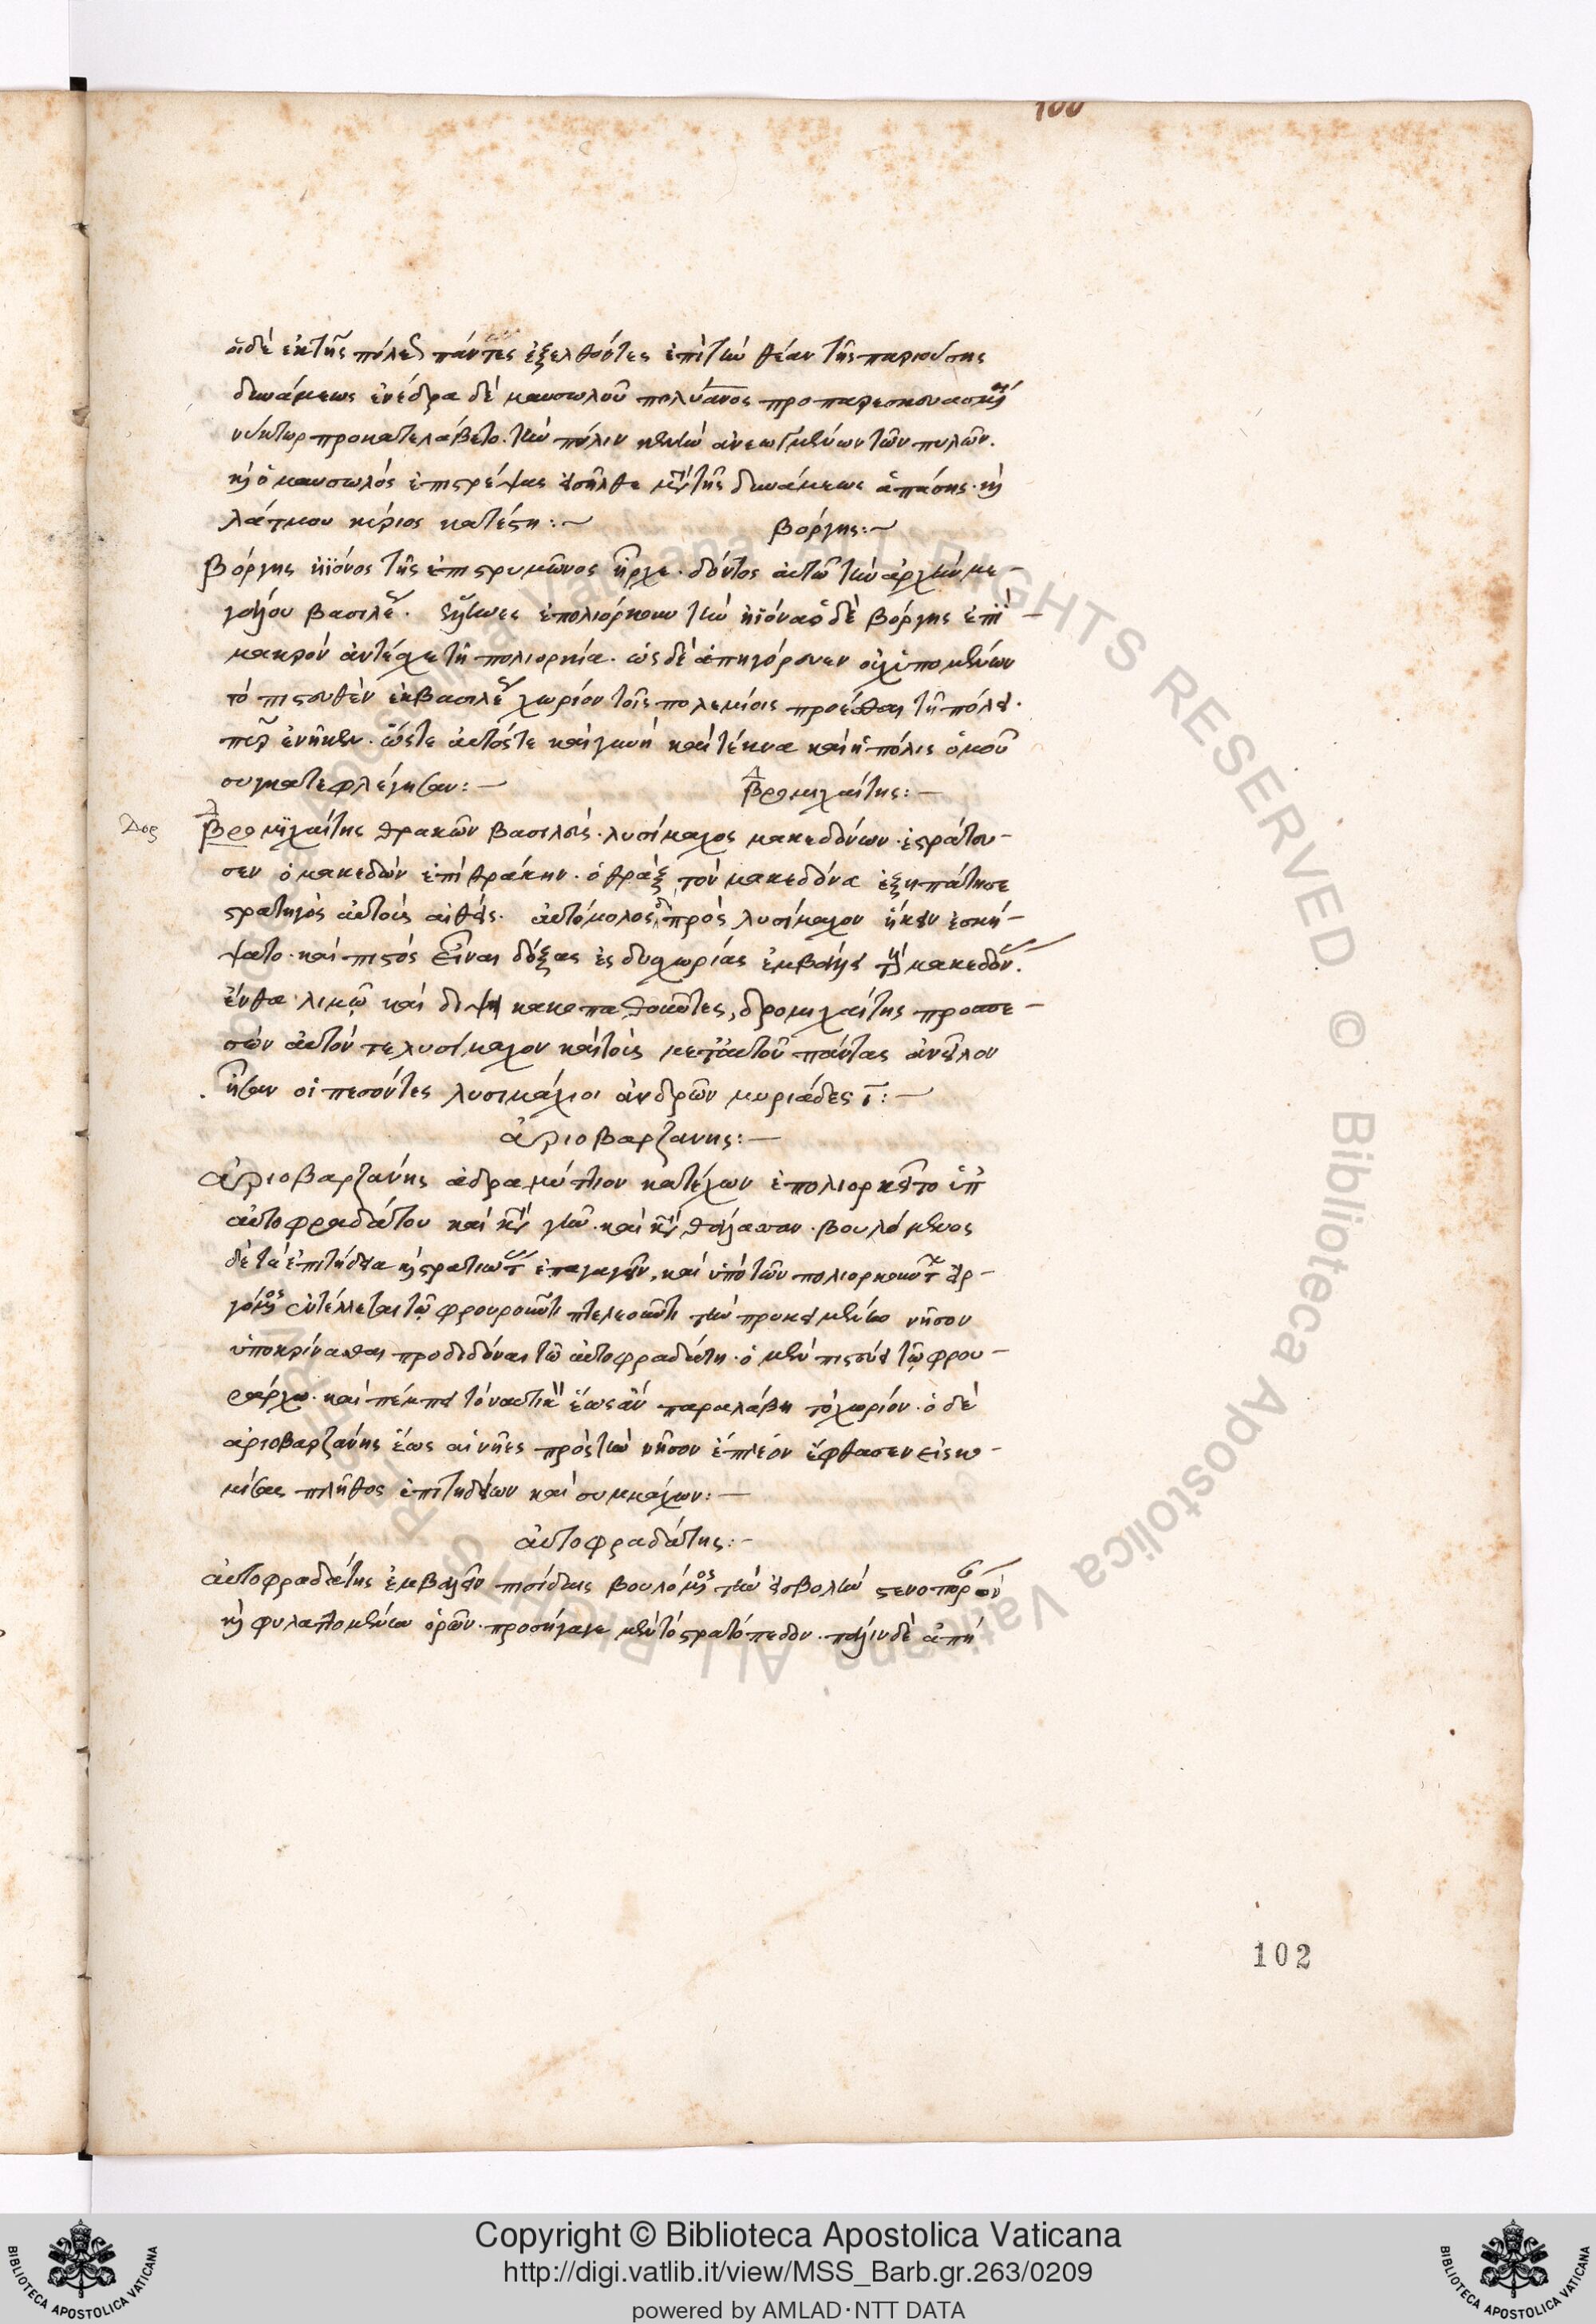 100
οἱ δὲ ἐκ τῆς πόλεως πάντες ἐξελθόντες ἐπὶ τὴν θέαν τῆς παριούσης
δυνάμεως ἐνέδρα δὲ μαυσωλοῦ πολύανος προπαρεσκευασμένη
νύκτωρ προκατελάβετο. τὴν πόλιν κενὴν ἀνεωγμένων τῶν πυλῶν.
καὶ ὁ μαυσωλὸς ἐπιστρέψας εἰσῆλθε μετὰ τῆς δυνάμεως ἁπάσης. καὶ
λάτμου κύριος κατέστη:~ βόργης:~
βόργης ἠϊόνος τῆς ἐπιστρυμῶνος ἦρχε. δόντος αὐτῷ τὴν ἀρχὴν με-
γάλου βασιλέως. ἕλληνες ἐπολιόρκουν τὴν ἠϊόνα ὁ δὲ βόργης ἐπὶ-
μακρὸν ἀντέσχε τῇ πολιορκία. ὡς δὲ ἀπηγόρευεν οὐχ ὑπομένων
τὸ πιστευθὲν ἐκ βασιλέως χωρίον τοῖς πολεμίοις προέσθαι τῇ πόλει.
πῦρ ἐνῆκεν. ὥστε αὐτός τε καὶ γυνὴ καὶ τέκνα καὶ ἡ πόλις ὁμοῦ
συγκατεφλέγησαν:- Δ βρομιχαίτης:-
δρο Δ βρομιχαίτης θρακῶν βασιλεὺς. λυσίμαχος μακεδόνων. ἐστράτευ-
σεν ὁ μακεδὼν ἐπὶ θράκην. ὁ θρᾲξ τὸν μακεδόνα ἐξηπάτησε
στρατηγὸς αὐτοῖς αἴθης. αὐτόμολος πρὸς λυσίμαχον ἥκειν ἐσκή-
ψατο. καὶ πιστὸς εἶναι δόξας ἐς δυσχωρίας ἐμβάλλει τοὺς μακεδόνας.
ἔνθα λιμῷ καὶ δίψῃ κακοπαθοῦντες, δρομιχαίτης προσπε-
σὼν αὐτόν τε λυσίμαχον καὶ τοὺς μετ' αὐτοῦ πάντας ἀνεῖλον
ἦσαν οἱ πεσόντες λυσιμάχιοι ἀνδρῶν μυριάδες ι:-
ἀριοβαρζανης:-
ἀριοβαρζάνης ἀδραμύττιον κατέχων ἐπολιορκεῖτο ὑπ'
αὐτοφραδάτου καὶ κατὰ γῆν. καὶ κατὰ θάλασσαν. βουλόμενος
δὲ τὰ ἐπιτήδεια καὶ στρατιώτας ἐπαγαγεῖν, καὶ ὑπὸ τῶν πολιορκούντων εἰρ-
γόμενος ἐντέλλεται τῷ φρουροῦντι πτελεοῦντι τὴν προκειμένην νῆσον
ὑποκρίνασθαι προδιδόναι τῷ αὐτοφραδάτῃ. ὁ μὲν πιστεύει τῷ φρου-
ράρχῳ. καὶ πέμπει τὸ ναυτικὸν ἕως ἂν παραλάβῃ τὸ χωρίον. ὁ δὲ
ἀριοβαρζάνης ἕως αἱ νῆες πρὸς τὴν νῆσον ἔπλεον ἔφθασεν εἰσκο-
μίσας πλῆθος ἐπιτηδείων καὶ συμμάχων:-
αὐτοφραδάτης:-
αὐτοφραδάτης ἐμβαλεῖν πισίδαις βουλόμενος τὴν εἰσβολὴν στενόπορον
καὶ φυλαττομένην ὁρῶν. προσήγαγε μὲν τὸ στρατόπεδον. πάλιν δὲ ἀπή
102
Copyright © Biblioteca Apostolica Vaticana
http://digi.vatlib.it/view/MSS_Barb.gr.263/0209
powered by AMLAD·NTT DATA